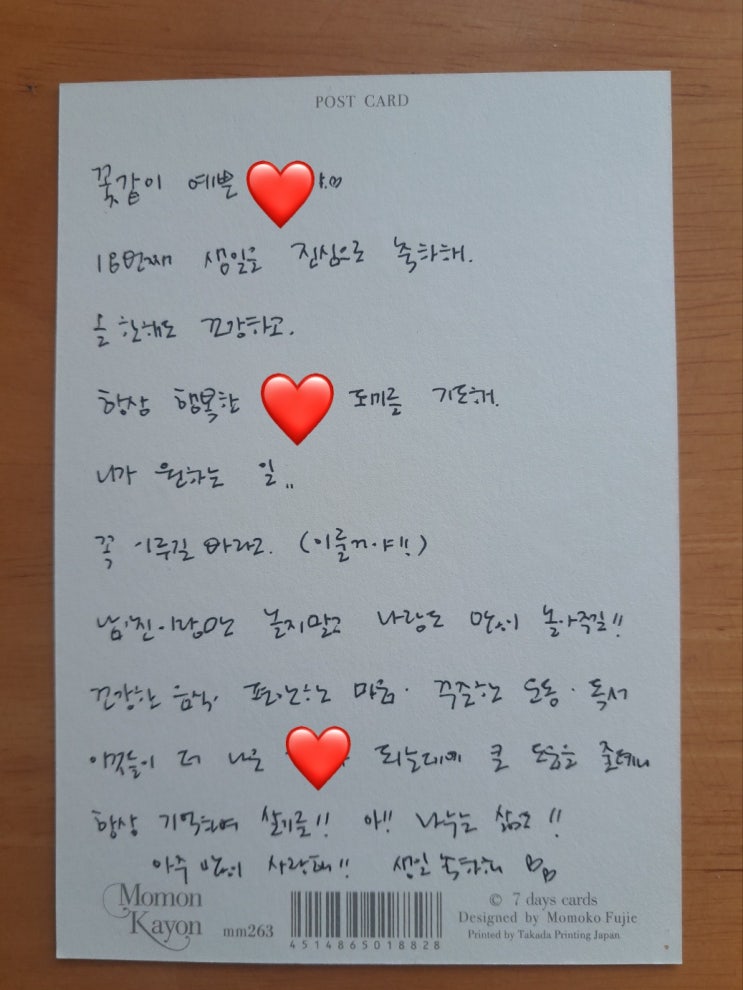 POST CARD
꽃같이 예쁜
18번째 생일을 진심으로 축하해.
올 한해도 건강하고.
항상 행복한 되기를 기도해.
니가 원하는 일..
꼭 이루길 바라고. (이룰꺼야!!)
남친이랑만 놀지말고 나랑도 많이 놀아주길!!
건강한 음식, 편안하는 마음. 꾸준하는 운동. 독서
이것들이 더 나은 되는데에 큰 도움을 줄테니
항상 기억하며 살기를!! 아!! 나누는 삶도!!
아주 많이 사랑해!! 생일 축하해
Momon
Kayon
mm263
4514865018828
© 7 days cards
Designed by Momoko Fujie
Printed by Takada Printing Japan